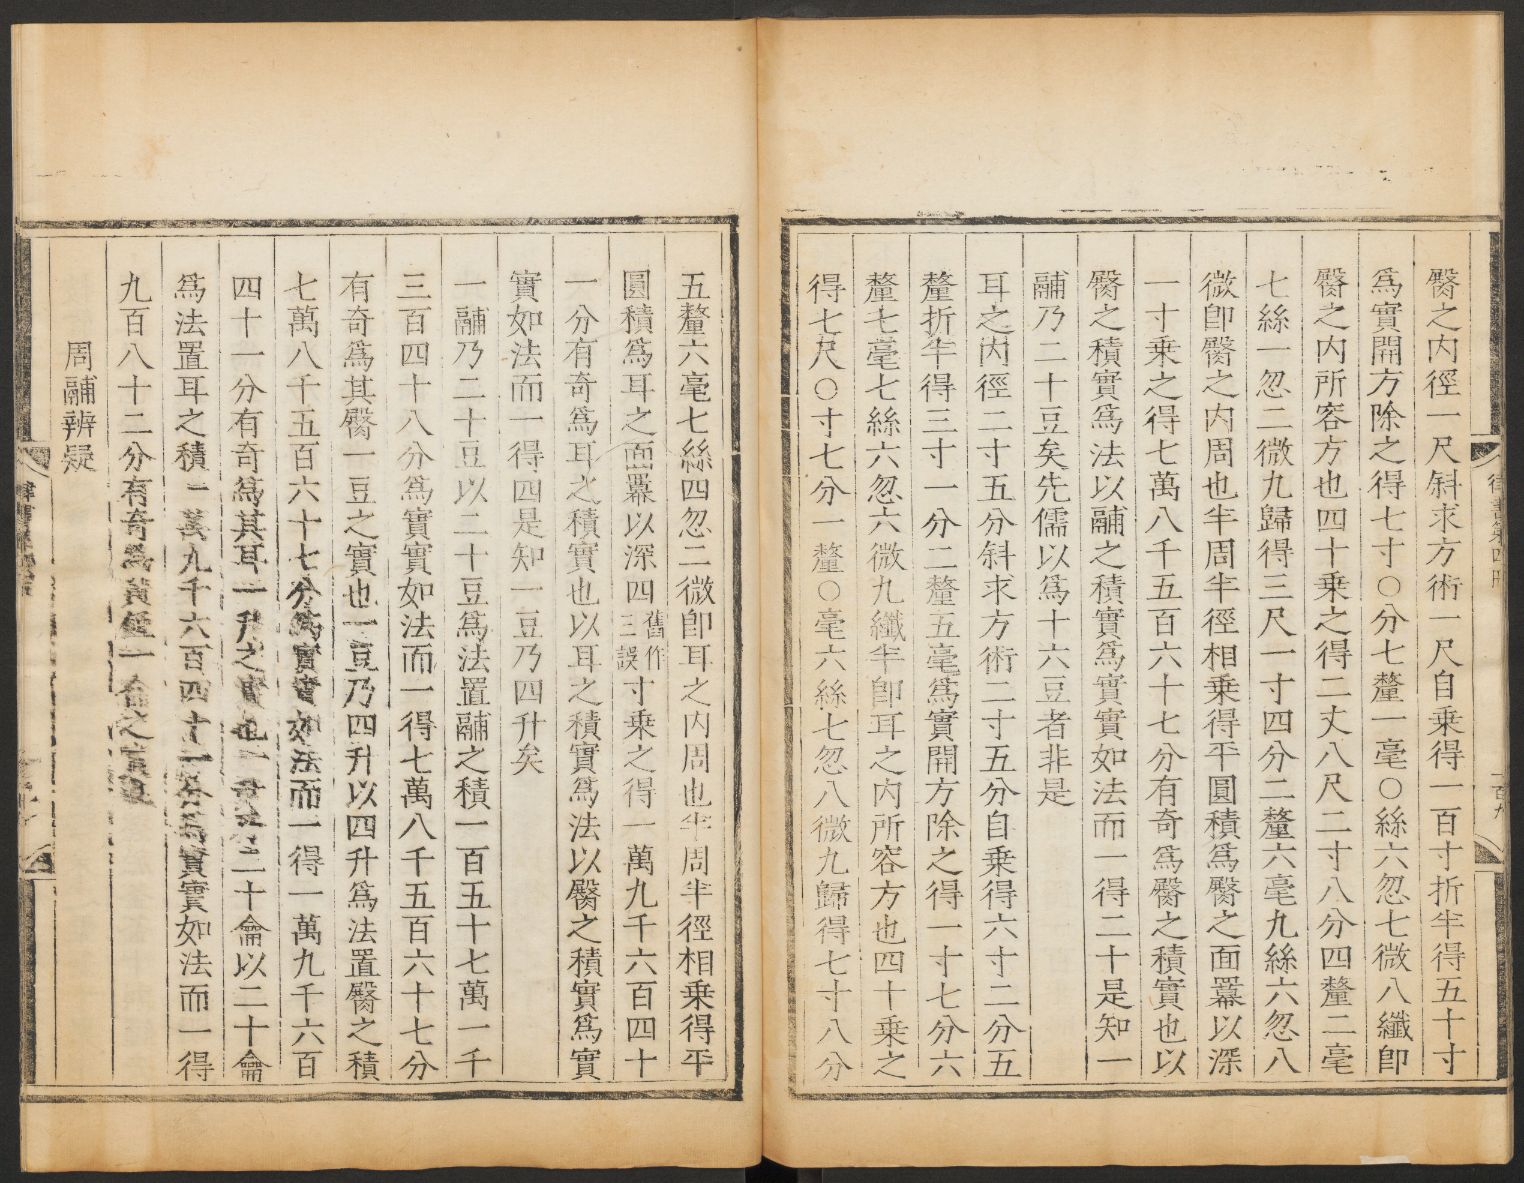 臋之内徑一尺斜求方術一尺自乘得一百寸折半得五十寸
爲實開方除之得七寸〇分七釐一毫〇絲六忽七微八纖卽
臋之内所容方也四十乘之得二丈八尺二寸八分四釐二毫
七絲一忽二微九歸得三尺一寸四分二釐六毫九絲六忽八
微卽臋之内周也半周半徑相乘得平圓積爲臋之面羃以深
一寸乘之得七萬八千五百六十七分有奇爲臋之積實也以
臋之積實爲法以鬴之積實爲實實如法而一得二十是知一
鬴乃二十豆矣先儒以爲十六豆者非是
耳之内徑二寸五分斜求方術二寸五分自乘得六寸二分五
釐折半得三寸一分二釐五毫爲實開方除之得一寸七分六
釐七毫七絲六忽六微九纖半卽耳之内所容方也四十乘之
得七尺〇寸七分一釐〇毫六絲七忽八微九歸得七寸八分
五釐六毫七絲四忽二微卽耳之内周也半周半徑相乘得平
圓積爲耳之面羃以深四舊作三誤寸乘之得一萬九千六百四十
一分有奇爲耳之積實也以耳之積實爲法以臋之積實爲實
實如法而一得四是知一豆乃四升矣
一鬴乃二十豆以二十豆爲法置鬴之積一百五十七萬一千
三百四十八分爲實實如法而一得七萬八千五百六十七分
有奇爲其臋一豆之實也一豆乃四升以四升爲法置臋之積
七萬八千五百六十七分爲實實如法而一得一萬九千六百
四十一分有奇爲其耳一升之實也一升二十龠以二十龠
爲法置耳之積一萬九千六百四十一分爲實實如法而一得
九百八十二分有奇爲黃鍾一龠之實也
周鬴辨疑
律書第四冊
一百九